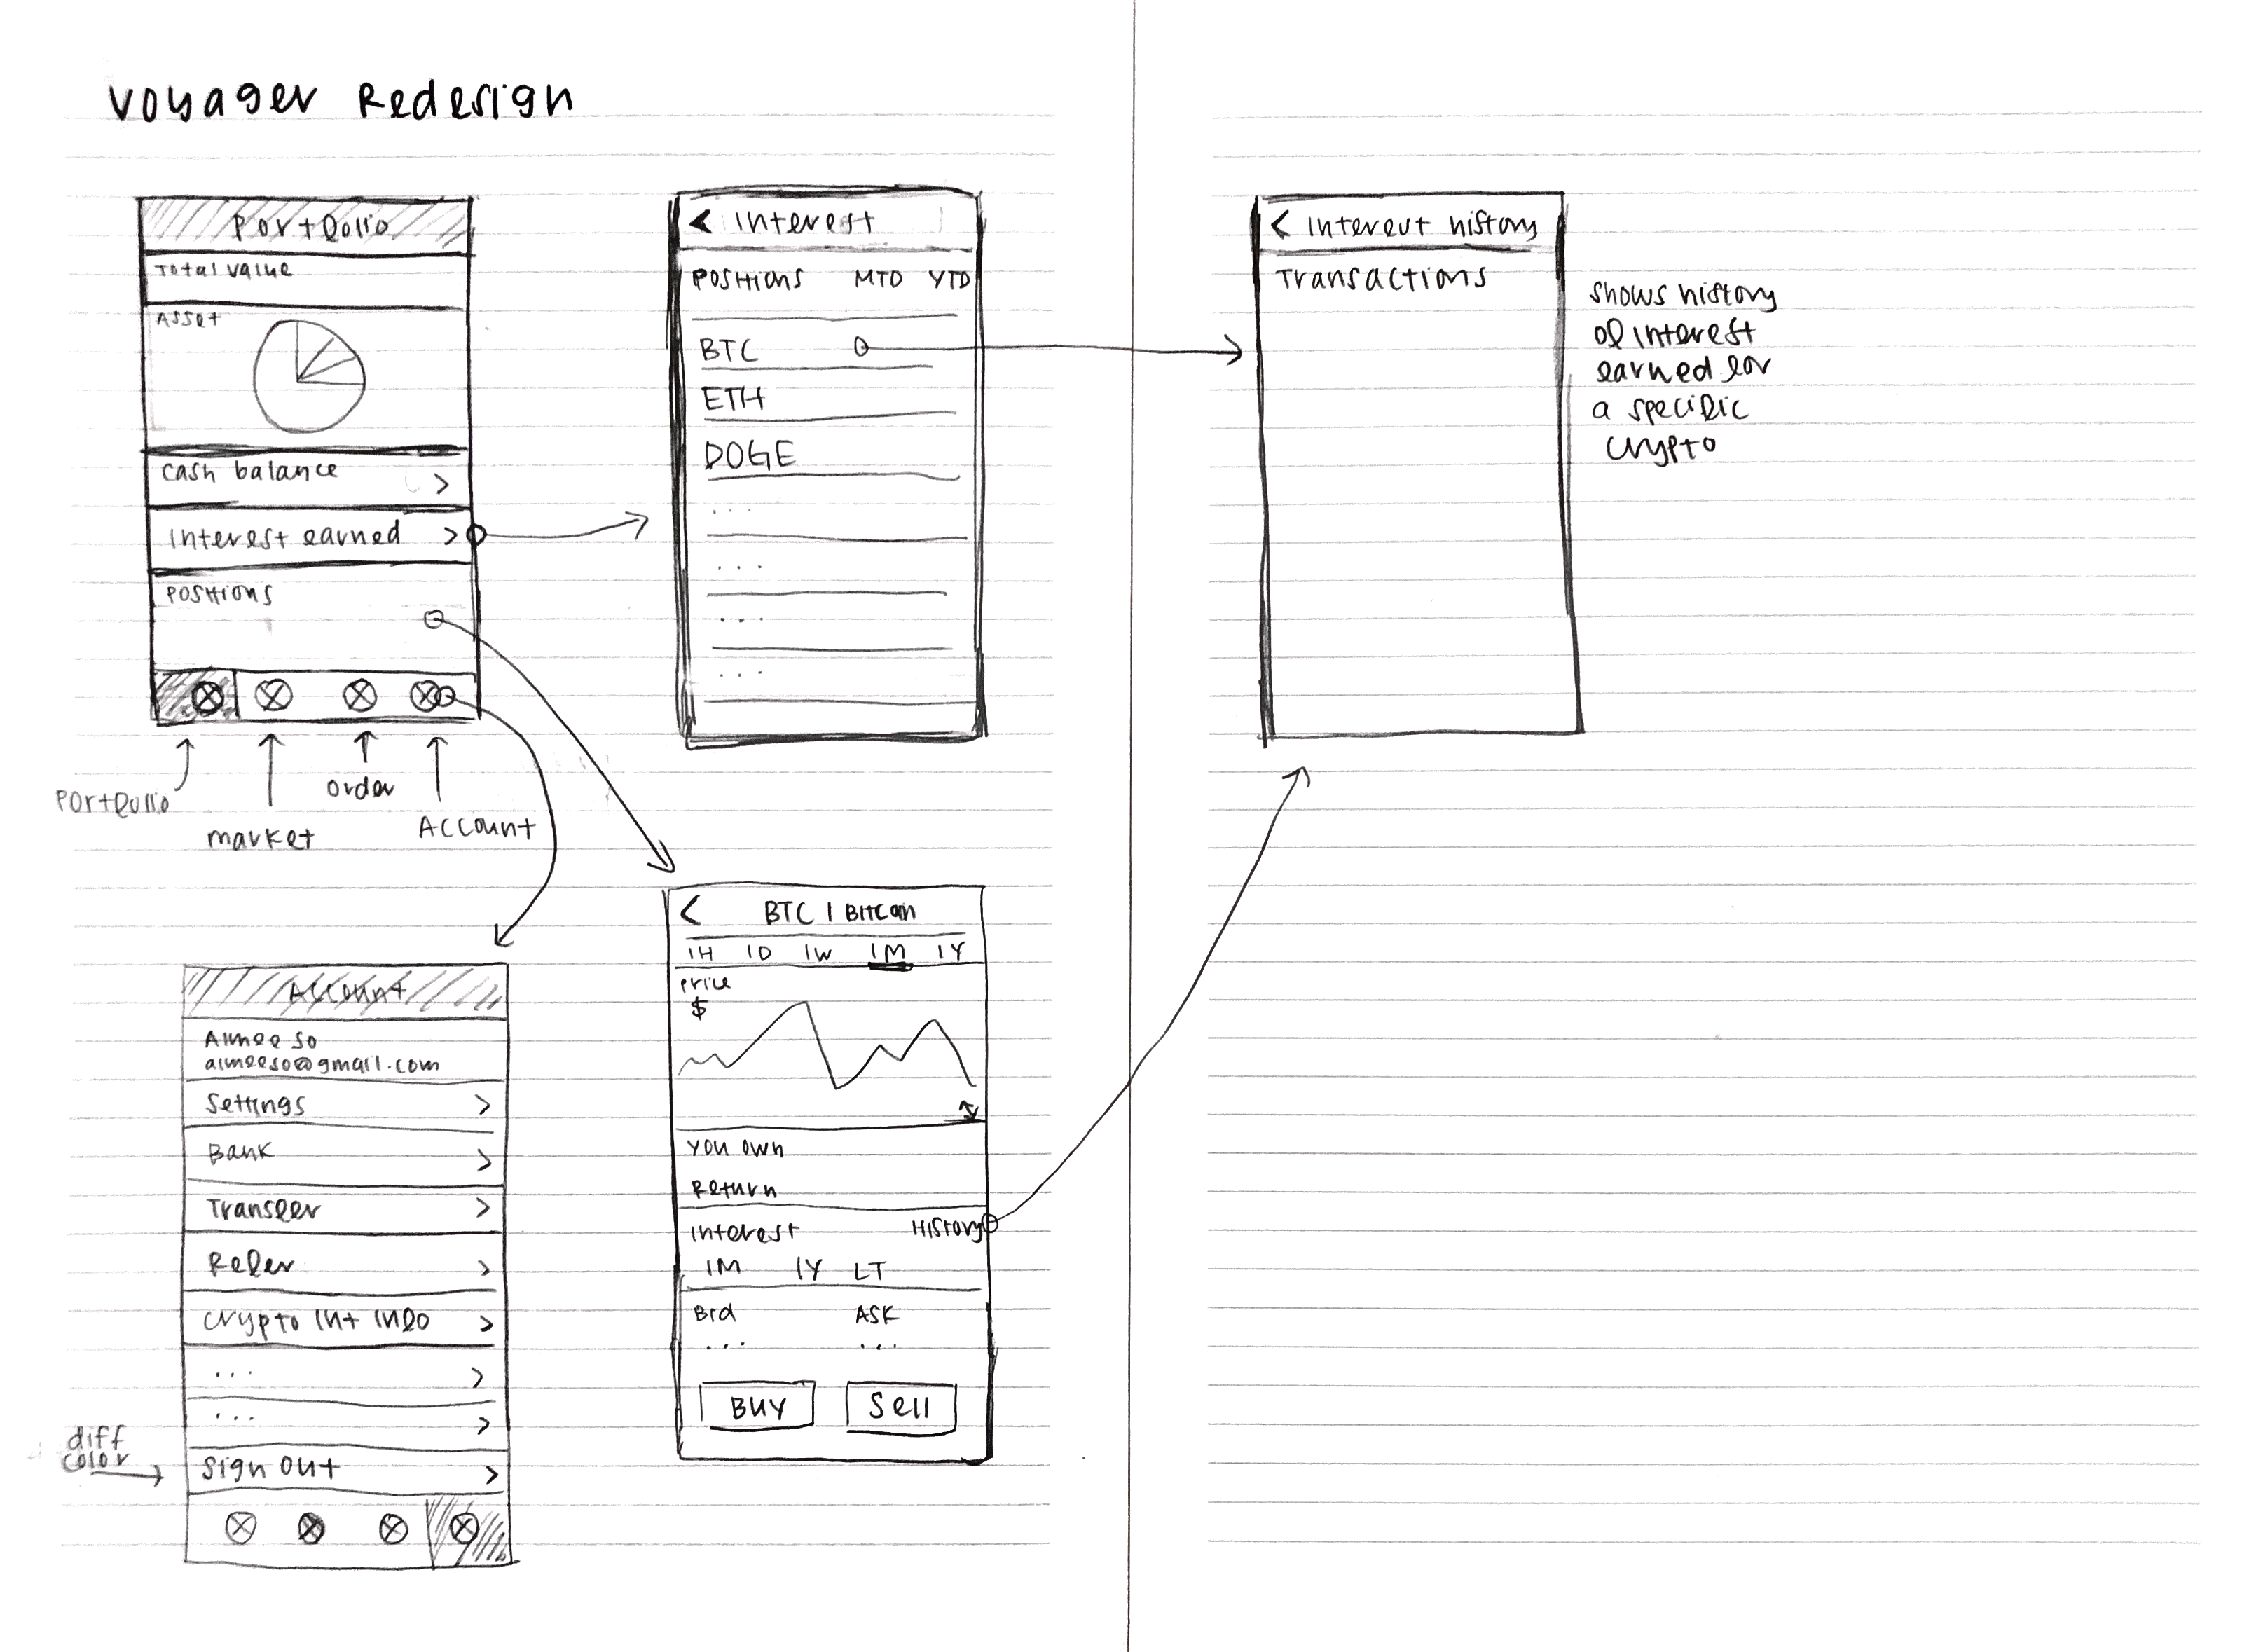 Voyager Redesign
Portfolio
Total value
Asset
Cash balance
>
Interest earned >
Positions
Portfolio
market
order
Account
< Interest
Positions MTD YTD
BTC
ETH
DOGE
...
...
...
...
< Interest history
Transactions
shows history
of interest
earned for
a specific
crypto
Account
Aimee so
aimeeso@gmail.com
Settings >
Bank >
Transfer >
Refer >
Crypto Int Info >
... >
... >
diff
color
Sign Out >
< BTC | Bitcoin
1H 1D 1W 1M 1Y
Price
$
You own
Return
Interest History
1M 1Y LT
Bid ASK
... ...
BUY Sell